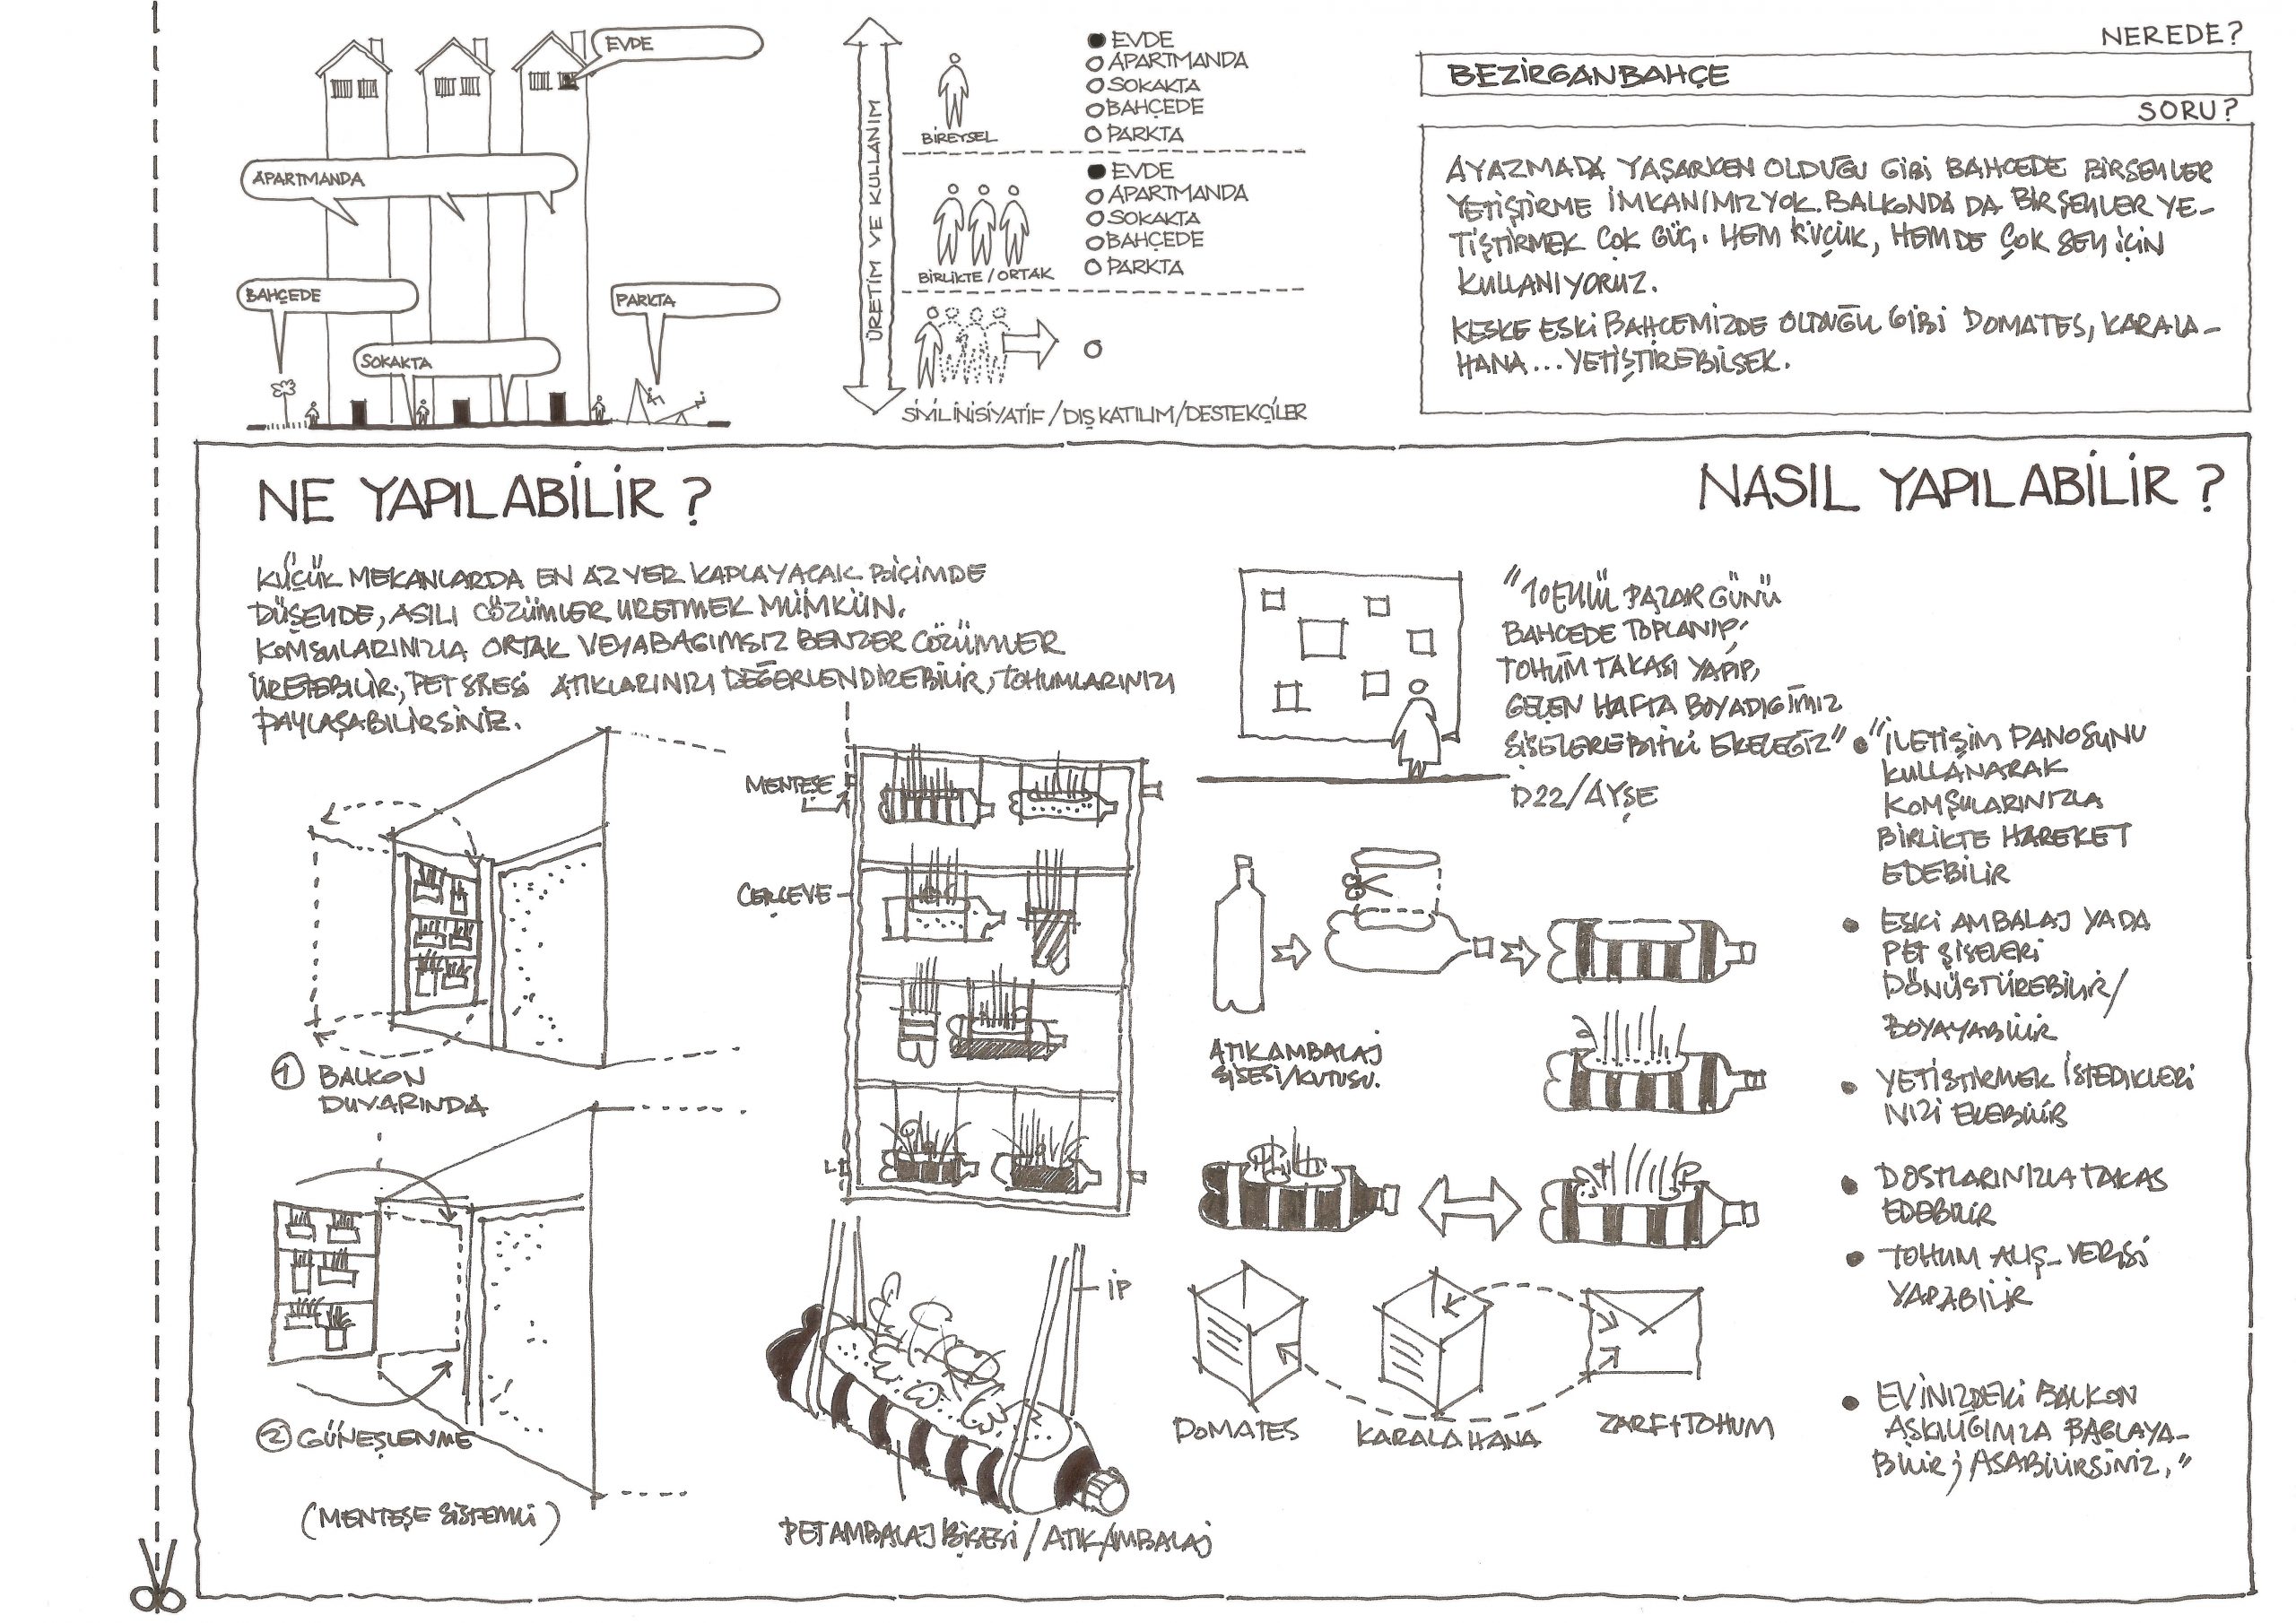 EVDE
APARTMANDA
BAHÇEDE
SOKAKTA
PARKTA
ÜRETİM VE KULLANIM
BİREYSEL
EVDE
APARTMANDA
SOKAKTA
BAHÇEDE
PARKTA
BİRLİKTE/ORTAK
EVDE
APARTMANDA
SOKAKTA
BAHÇEDE
PARKTA
SİVİL İNİSİYATİF/DIŞ KATILIM/DESTEKÇİLER
NEREDE?
BEZİRGANBAHÇE
SORU?
AYAZMADA YAŞARKEN OLDUĞU GİBİ BAHCEDE BİRŞEYLER
YETİŞTİRME İMKANIMIZ YOK. BALKONDA DA BİRŞEYLER YE-
TİŞTİRMEK ÇOK GÜÇ. HEM KÜÇÜK, HEM DE ÇOK ŞEY İÇİN
KULLANIYORUZ.
KEŞKE ESKİ BAHCEMİZDE OLDUĞU GİBİ DOMATES, KARALA-
HANA... YETİŞTİREBİLSEK.
NE YAPILABİLİR?
KÜÇÜK MEKANLARDA EN AZ YER KAPLAYACAK BİÇİMDE
DÜŞEYDE, ASILI ÇÖZÜMLER ÜRETMEK MÜMKÜN.
KOMŞULARINIZLA ORTAK VEYA BAGIMSIZ BENZER ÇÖZÜMLER
ÜRETEBİLİR, PET ŞİŞESİ ATIKLARINIZI DEĞERLENDİREBİLİR, TOHUMLARINIZI
PAYLAŞABİLİRSİNİZ.
① BALKON
DUVARINDA
② GÜNEŞLENME
(MENTEŞE SİSTEMLİ)
MENTEŞE
ÇERÇEVE
İP
PET AMBALAJ ŞİŞESİ / ATIK AMBALAJ
NASIL YAPILABİLİR?
"10 EYLÜL PAZAR GÜNÜ
BAHCEDE TOPLANIP,
TOHUM TAKASI YAPIP,
GEÇEN HAFTA BOYADIĞIMIZ
ŞİŞELERE BİTKİ EKELEĞİZ"
D22/AYŞE
ATIK AMBALAJ
ŞİŞESİ/KUTUSU.
DOMATES
KARALAHANA
ZARF+TOHUM
• "İLETİŞİM PANOSUNU
KULLANARAK
KOMŞULARINIZLA
BİRLİKTE HAREKET
EDEBİLİR
• ESKİ AMBALAJ YADA
PET ŞİŞELERİ
DÖNÜŞTÜREBİLİR/
BOYAYABİLİR
• YETİŞTİRMEK İSTEDİKLERİ
NİZİ EKEBİLİR
• DOSTLARINIZLA TAKAS
EDEBİLİR
• TOHUM ALIŞ-VERİŞİ
YAPABİLİR
• EVİNİZDEKİ BALKON
ASKILIĞINIZA BAĞLAYA-
BİLİR, ASABİLİRSİNİZ."